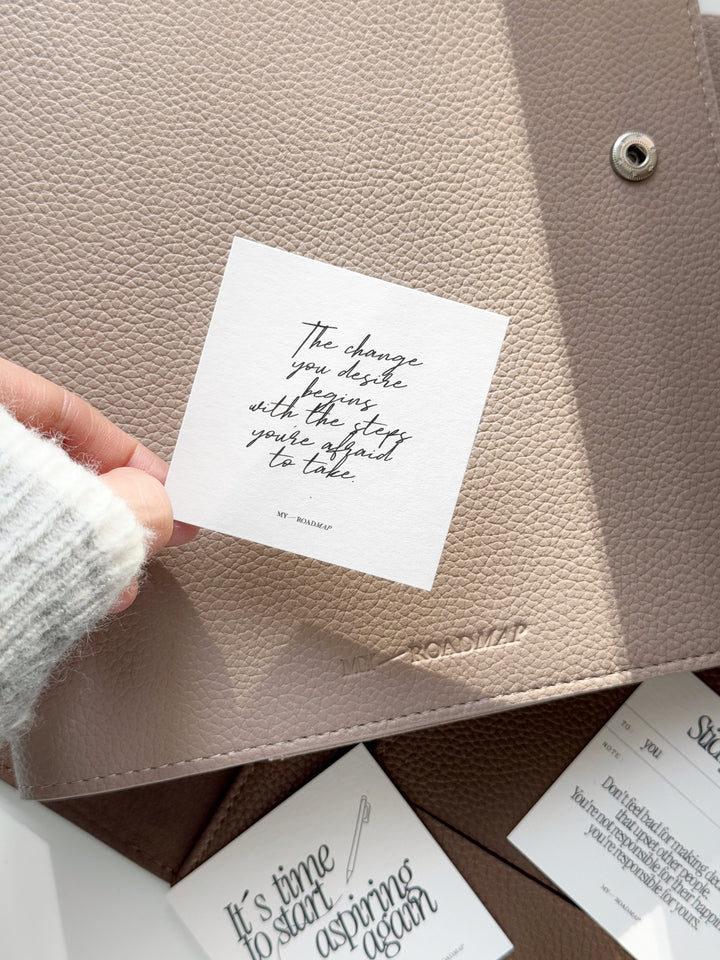 The change
you desire
begins
with the steps
you're afraid
to take.
MY—ROADMAP
MY—ROADMAP
It's time
to start
aspiring
again
TO:
you
NOTE:
Don't feel bad for making
that upset other people.
You're not responsible for their
you're responsible for yours.
MY—ROADMAP